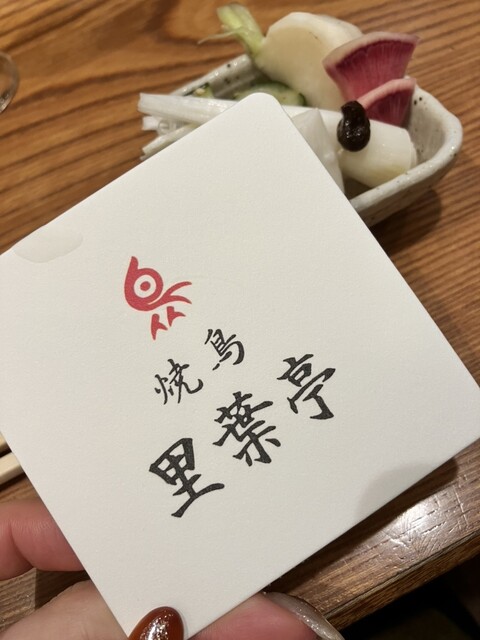 焼鳥
里葉亭